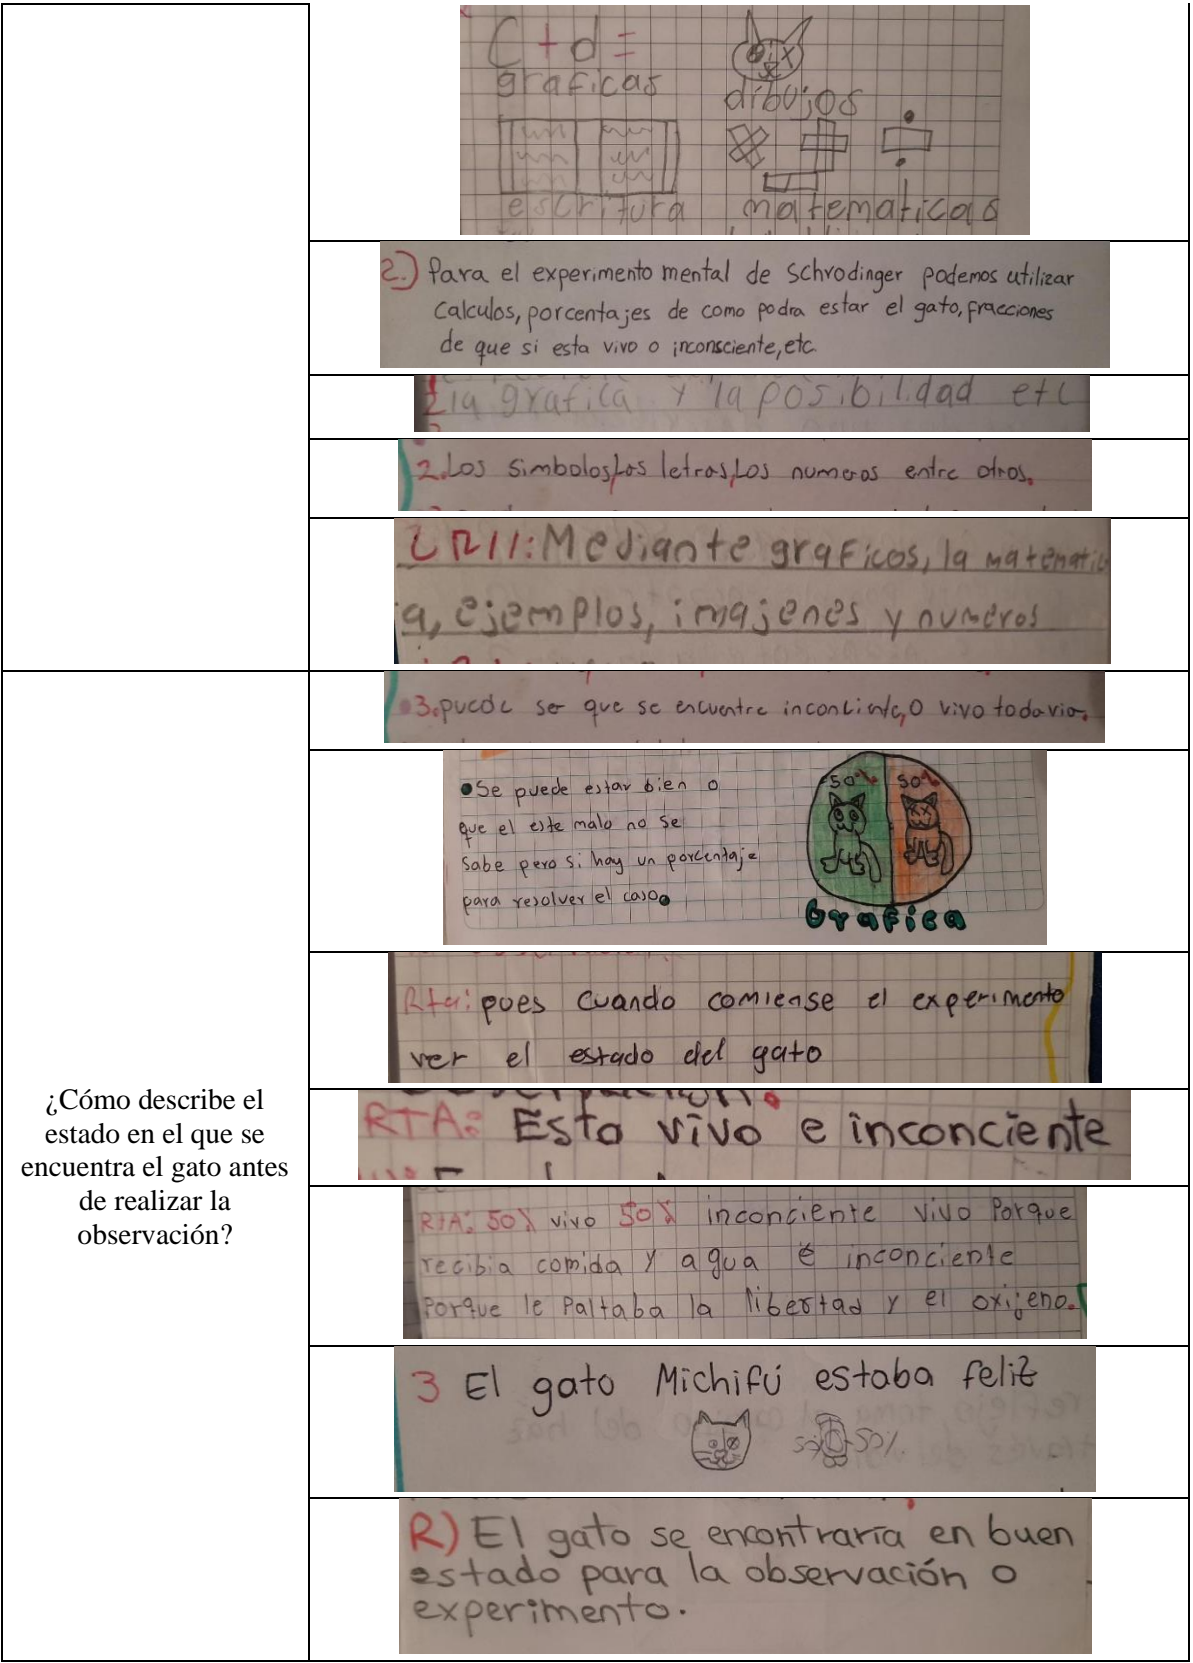 C + d =
graficas
dibujos
escritura
matematicas
2.) Para el experimento mental de Schrodinger podemos utilizar
Calculos, porcentajes de como podra estar el gato, fracciones
de que si esta vivo o inconsciente, etc.
la grafica y la posibilidad etc
2. Los simbolos, Los letras, Los numeros entre otros.
Mediante graficos, la matematic
a, ejemplos, imajenes y numeros
¿Cómo describe el
estado en el que se
encuentra el gato antes
de realizar la
observación?
3. puede ser que se encuentre inconciente, O vivo todavia.
Se puede estar bien o
que el este malo no se
sabe pero si hay un porcentaje
para resolver el caso.
50% 50%
Grafica
Rta: pues cuando comiense el experimento
ver el estado del gato
RTA: Esta vivo e inconciente
RTA: 50% vivo 50% inconciente vivo Porque
recibia comida y agua e inconciente
Porque le Paltaba la libertad y el oxijeno.
3 El gato Michifú estaba feliz
50%
R) El gato se encontraría en buen
estado para la observación o
experimento.